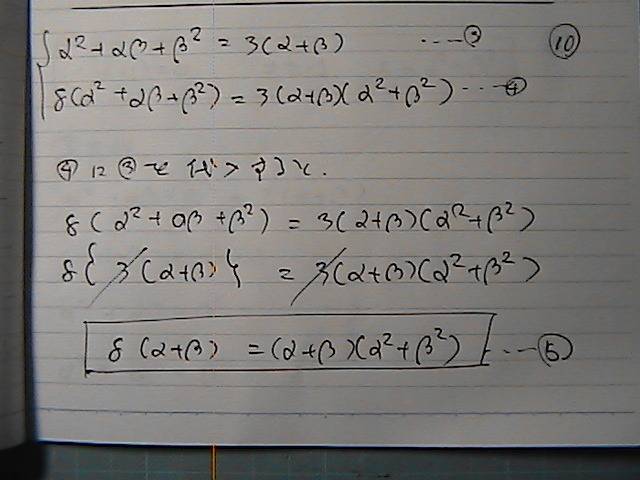 α²+αβ+β² = 3(α+β) ----③ ⑩
8(α²+αβ+β²) = 3(α+β)(α²+β²) ---④
④に③を代入すると.
8(α²+αβ+β²) = 3(α+β)(α²+β²)
8{3(α+β)} = 3(α+β)(α²+β²)
8(α+β) = (α+β)(α²+β²) ---⑤